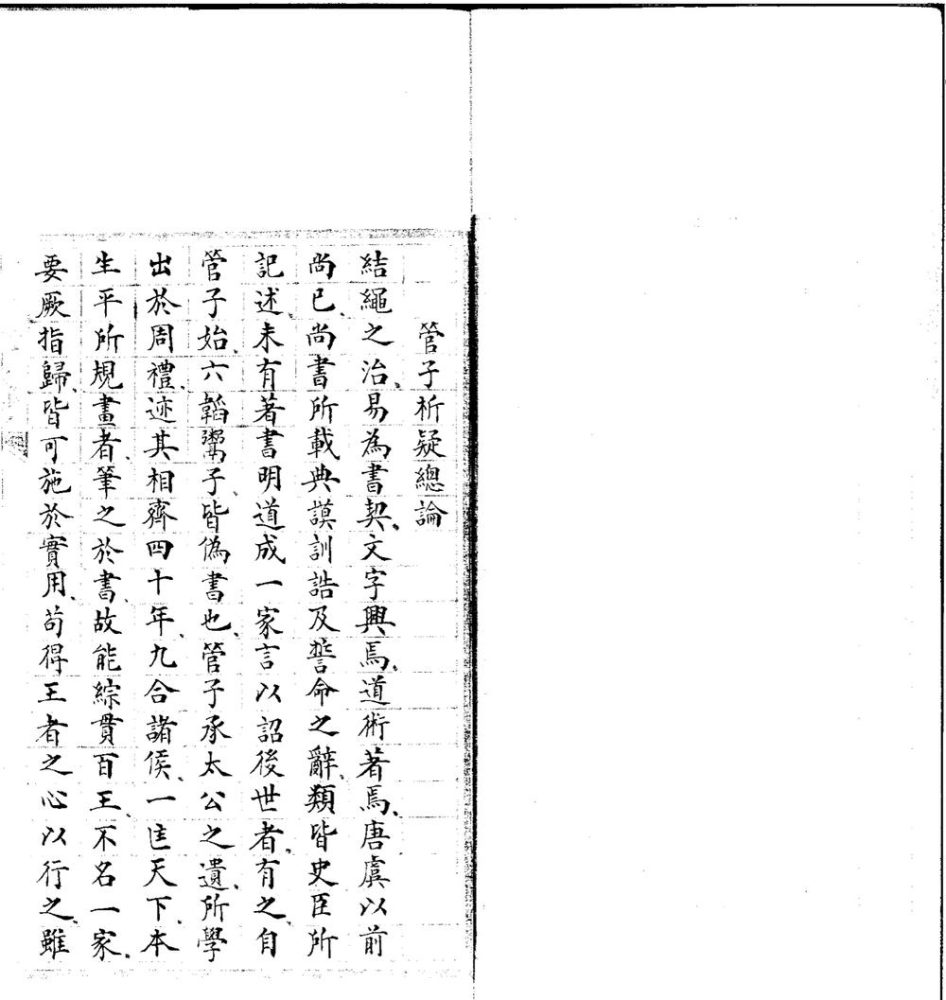 管子析疑總論
結繩之治、易為書契、文字興焉、道術著焉、唐虞以前
尚已、尚書所載典謨訓誥及誓命之辭、類皆史臣所
記述、未有著書明道成一家言以詔後世者、有之、自
管子始、六韜鬻子、皆偽書也、管子承太公之遺、所學
出於周禮、迹其相齊四十年、九合諸侯、一匡天下、本
生平所規畫者、筆之於書、故能綜貫百王、不名一家、
要厥指歸、皆可施於實用、苟得王者之心以行之、雖